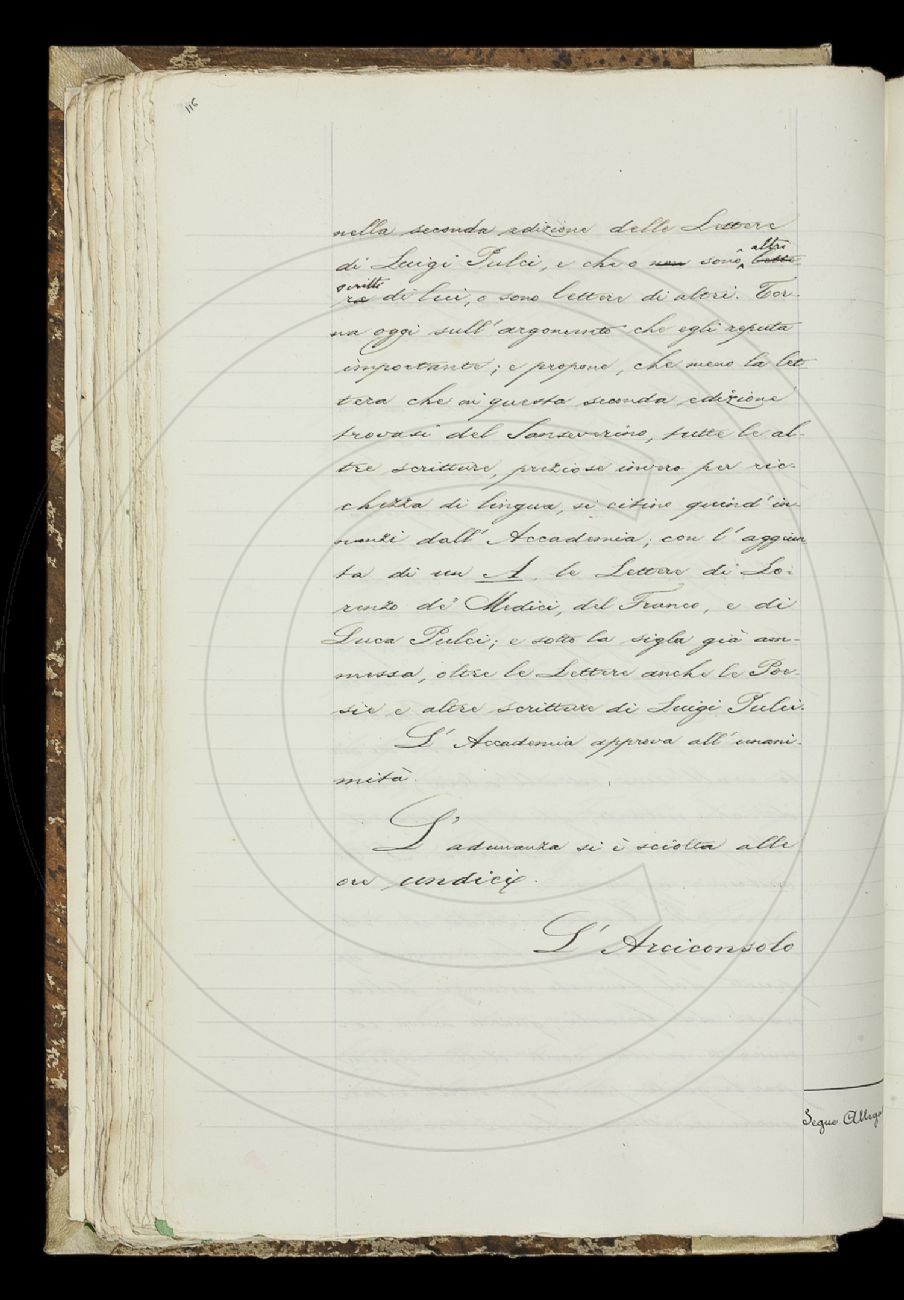 115
nella seconda edizione delle Lettere
di Luigi Pulci, e che o non sono altri lette
scritti
re di lui, o sono lettere di altri. Tor-
na oggi sull' argomento che egli reputa
importante; e propone, che meno la let
tera che in questa seconda edizione
trovasi del Sanseverino, tutte le al-
tre scritture, preziose invero per ric-
chezza di lingua, si citino quind' in-
nanzi dall' Accademia; con l' aggiun
ta di un A, le Lettere di Lo-
renzo de' Medici, del Franco, e di
Luca Pulci; e sotto la sigla già am-
messa, oltre le Lettere anche le Poe-
sie e altre scritture di Luigi Pulci.
L' Accademia approva all' unani-
mità.
L' adunanza si è sciolta alle
ore undici.
L' Arciconsolo
Segue Allega